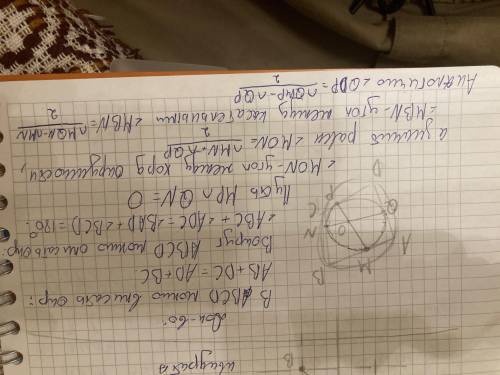 Док-во:
В ABCD можно вписать окр:
AB + DC = AD + BC
Вокруг ABCD можно описать окр:
∠ABC + ∠ADC = ∠BAD + ∠BCD = 180°
Пусть MP ∩ QN = O
∠MON - угол между хорд окружности,
а значит равен ∠MON = (∩MN + ∩QP)/2
∠MBN - угол между касательными ∠MBN = (∩MQN - ∩MN)/2
Аналогично ∠QDP = (∩QMP - ∩QP)/2
D
P
C
Q
N
O
A
B
M
B